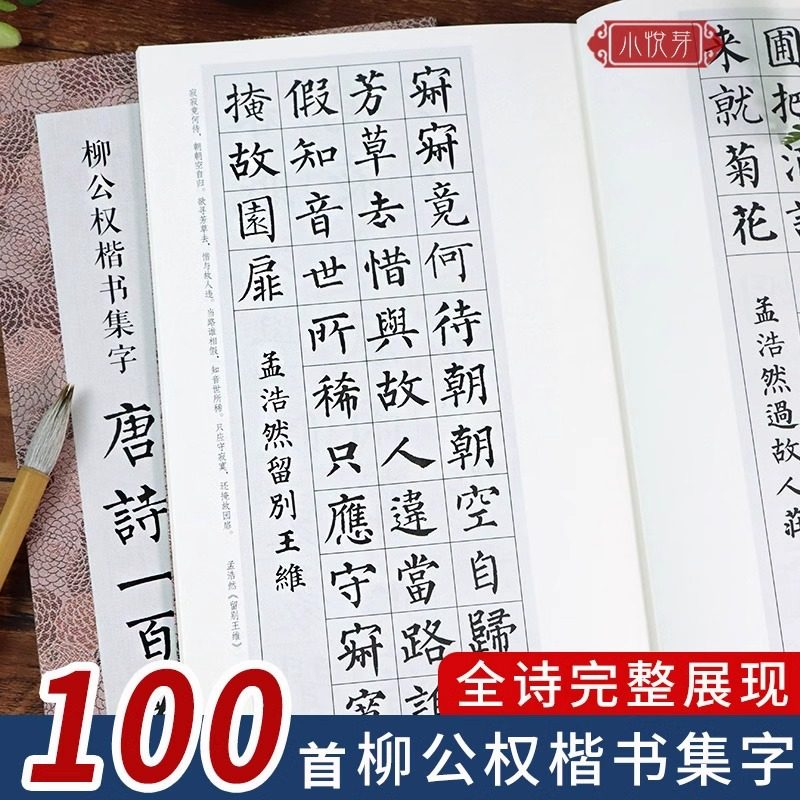 小悦芽
柳公权楷书集字
唐詩一百
寂寂竟何待朝朝空自歸
芳草去惜與故人違當路誰
假知音世所稀只應守寂寞
掩故園扉
孟浩然留別王維
寂寂竟何待，朝朝空自归。欲寻芳草去，惜与故人违。当路谁相假，知音世所稀。只应守寂寞，还掩故园扉。 孟浩然《留别王维》
圃把酒話
来就菊花
孟浩然過故人莊
全诗完整展现
100首柳公权楷书集字